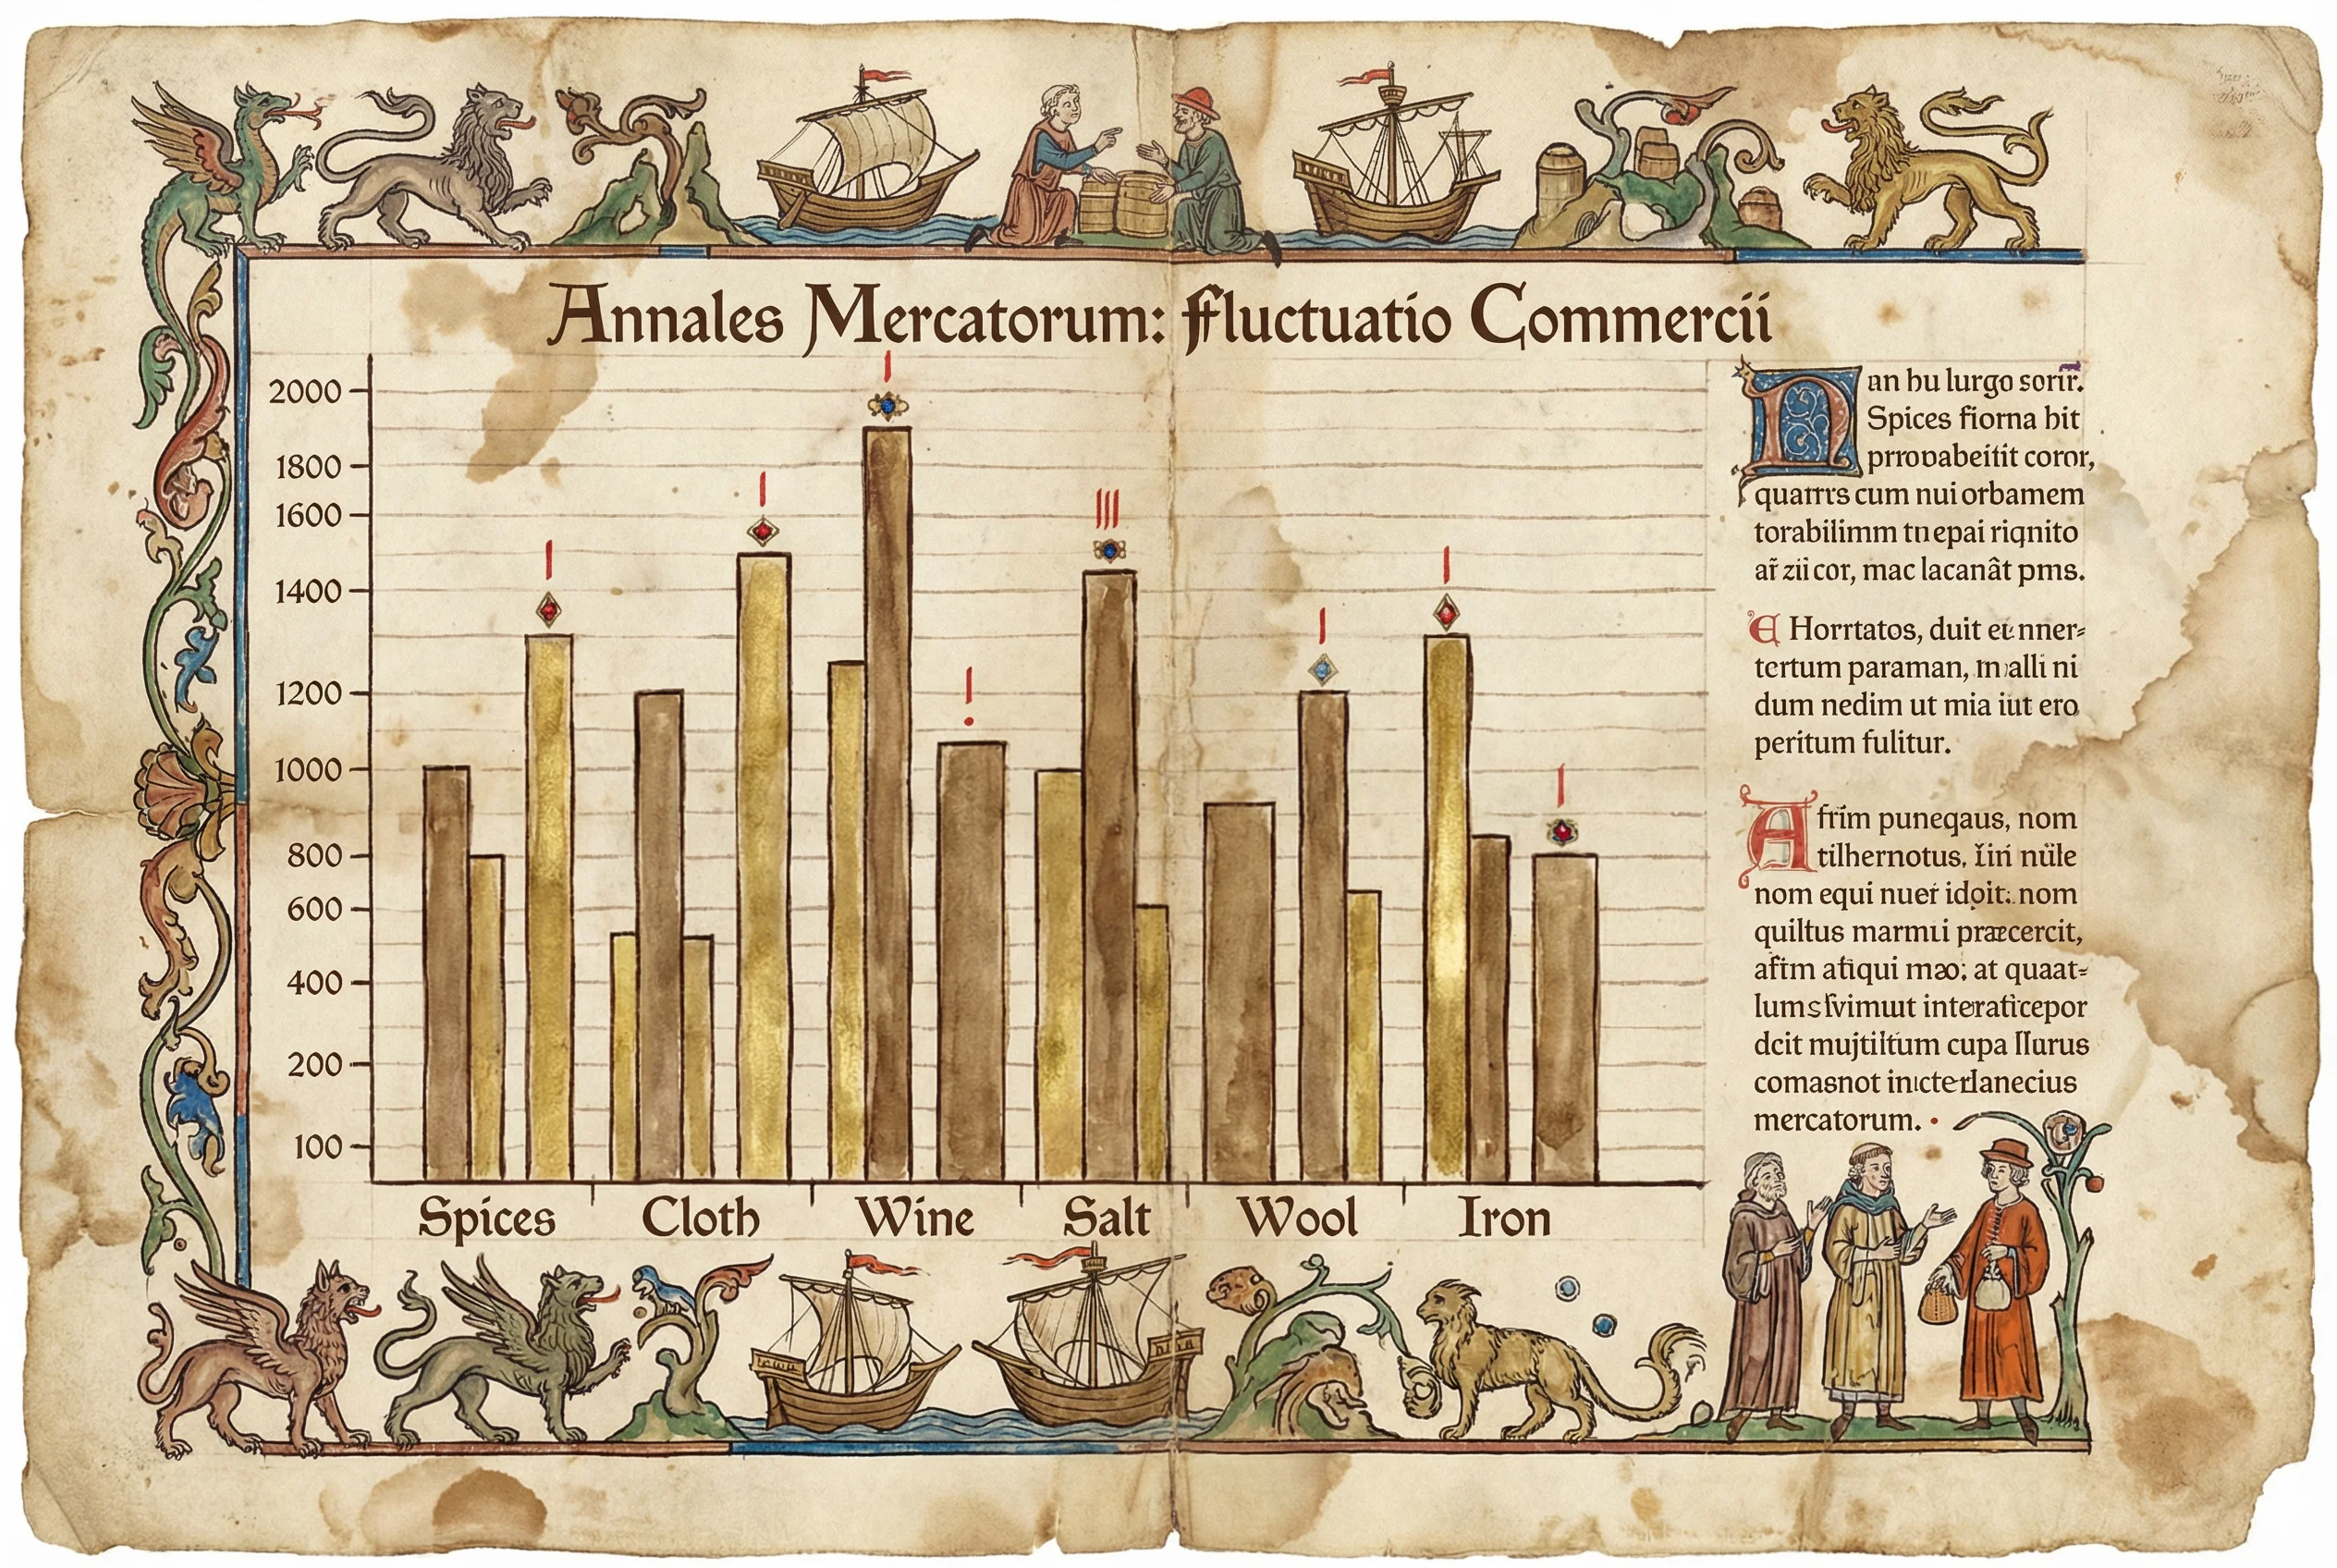 Annales Mercatorum: Fluctuatio Commercii
2000
1800
1600
1400
1200
1000
800
600
400
200
100
Spices Cloth Wine Salt Wool Iron
Nan hu lurgo sorir.
Spices fiorna hit
prrovabeitit coror,
quarrrs cum nui orbamem
torabilimm tnepai riqnito
ar̃ zii cor, mac lacanât pms.
Horrtatos, duit eunner-
tertum paraman, malli ni
dum nedim ut mia iut ero
peritum fulitur.
Afrim puneqaus, nom
tilhernotus, nüle
nom equi nuer idoit: nom
quiltus marmii præcercit,
afim atiqui mao; at quaat-
interaticepor
dcit mujtiltum cupa
comasnot
mercatorum.